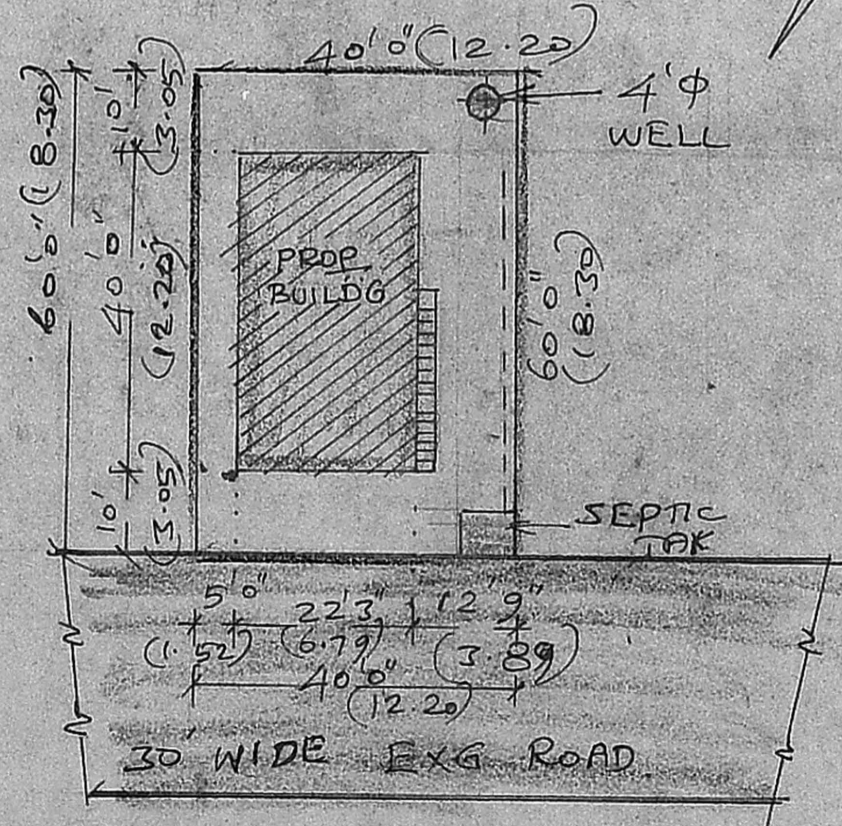 40'0"(12.20)
4'φ
WELL
60'0"(18.30)
10'
(3.05)
40'0"
(12.20)
10'
(3.05)
PROP
BUILDG
60'0"
(18.30)
SEPTIC
TAK
5'0" 22'3" 12'9"
(1.52) (6.79) (3.89)
40'0"
(12.20)
30' WIDE EXG ROAD